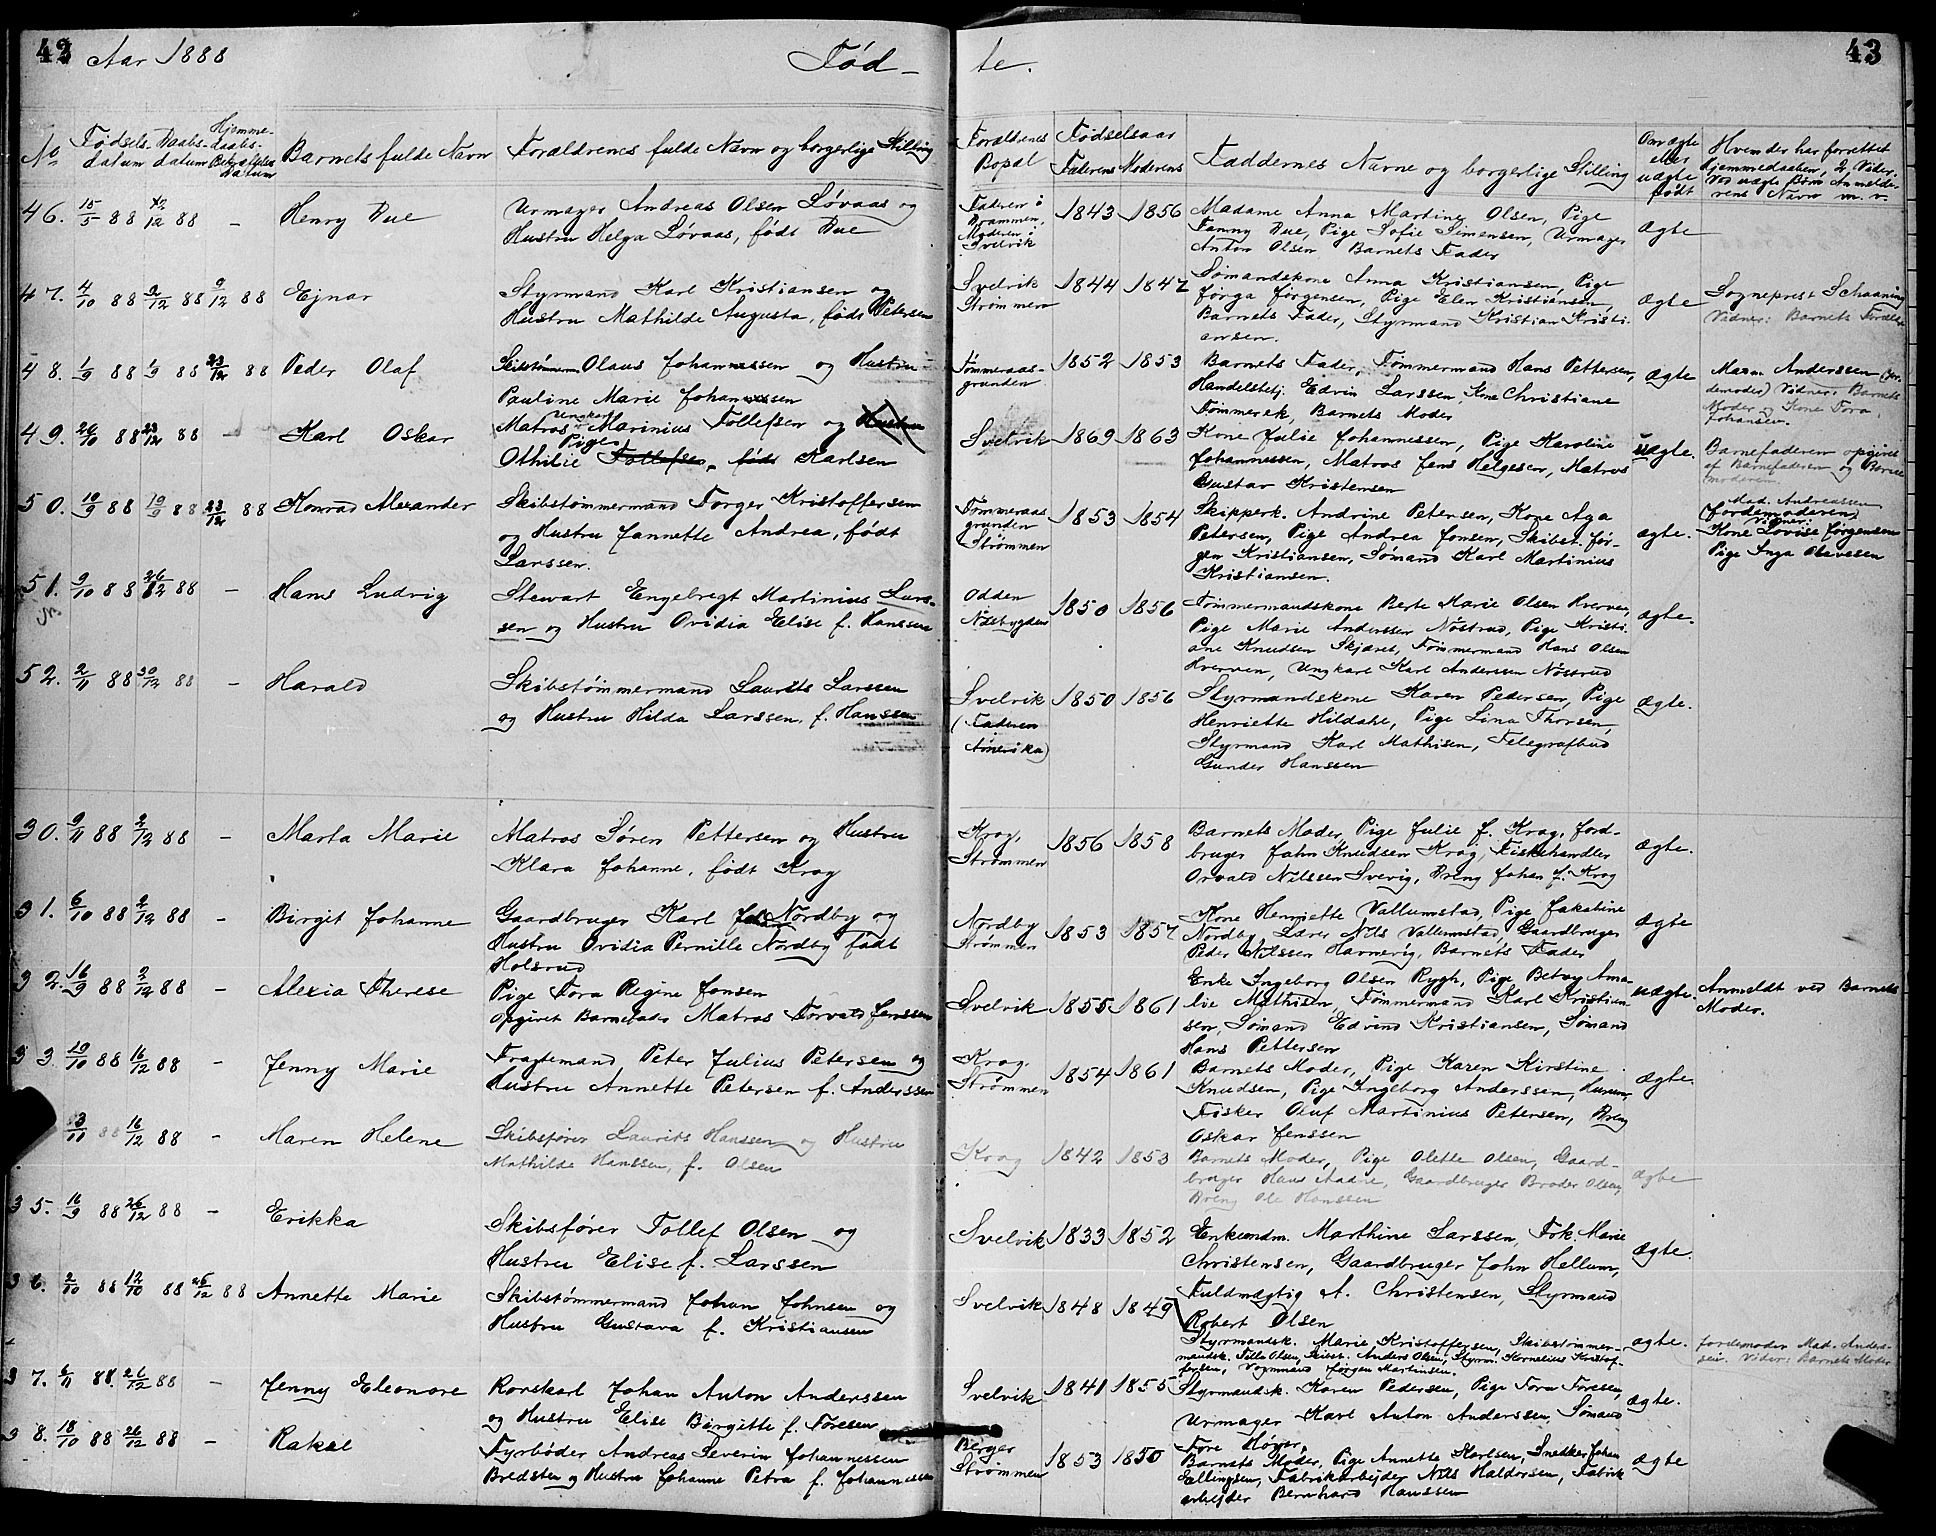 42 Aar 1888 Fød-
No Fødsels- datum Daabs- datum Hjemme- daabs- Bekræftelses Datum Barnets fulde Navn Forældrenes fulde Navn og borgerlige Stilling
46. 15/5 88 /12 88 - Henry Due Urmager Andreas Olsen Løvaas og
Hustru Helga Løvaas, født Due
47. 4/10 88 9/12 88 9/12 88 Ejnar Styrmand Karl Kristiansen og
Hustru Mathilde Augusta, født Petersen
48. 1/9 88 1/9 88 23/12 88 Peder Olaf Skibstømmerm. Olaus Johannessen og Hustru
Pauline Marie Johannessen
49. 26/10 88 23/12 88 - Karl Oskar Matros Ungkarl Marinius Tollefsen og Hustru
Pige
Othilie Tollefsen, født Karlsen
50. 19/9 88 19/9 88 23/12 88 Konrad Alexander Skibstømmermand Torger Kristoffersen
og Hustru Jannette Andrea, født
Larssen.
51. 9/10 88 26/12 88 - Hans Ludvig Stewart Engebregt Martinius Lars-
sen og Hustru Ovidia Elise f. Hanssen
52. 2/11 88 30/12 88 - Harald Skibstømmermand Laurits Larssen
og Hustru Hilda Larssen, f. Hanssen
30. 9/11 88 2/12 88 - Marta Marie Matros Søren Pettersen og Hustru
Klara Johanne, født Krog
31. 6/10 88 2/12 88 - Birgit Johanne Gaardbruger Karl Nordby og
Hustru Ovidia Pernille Nordby født
Holsrud
32. 16/9 88 2/12 88 - Alexia Therese Pige Tora Regine Jonsen
Opgivet Barnefader Matros Torvald Jenssen
33 19/10 88 16/12 88 - Jenny Marie Fragtemand Peter Julius Petersen og
Hustru Annette Petersen f. Anderssen
13/11 88 16/12 88 - Maren Helene Skibsfører Laurits Hanssen og Hustru
Mathilde Hanssen, f. Olsen
35. 16/9 88 26/12 88 - Erikka Skibsfører Tollef Olsen og
Hustru Elise f. Larssen
36. 2/10 88 12/10 88 26/12 88 Annette Marie Skibstømmermand Johan Johnsen og
Hustru Gustava f. Kristiansen
37. 6/11 88. 26/12 88 - Jenny Eleonore Rorskarl Johan Anton Anderssen
og Hustru Elise Birgitte f. Toresen
38. 18/10 88 26/12 88 - Rakel Fyrbøder Andreas Severin Johannessen
Bredsten og Hustru Johanne Petra f. Johannessen
te. 43
Forældrenes Bopæl Fødselsaar Faderens Moderens Faddernes Navne og borgerlige Stilling Om ægte eller uægte født Hvem der har forrettet
Hjemmedaaben, 2 Vidner.
Ved uægte Børn Anmelde-
rens Navn m. v.
Faderen i Drammen, Moderen i Svelvik 1843 1856 Madame Anna Martine Olsen, Pige
Fanny Due, Pige Sofie Simensen, Urmager
Anton Olsen Barnets Fader
Ægte
Svelvik Strømmen 1844 1847 Sømandskone Anna Kristiansen, Pige
Jørga Jørgensen, Pige Elen Kristiansen,
Barnets Fader, Styrmand Kristian Kristi-
ansen.
ægte Sogneprest Schaaning
Vidner: Barnets Forældre
Tømmeraas- grunden 1852 1853 Barnets Fader, Tømmermand Hans Pettersen,
Handelsbetj. Edvin Larssen, Kone Christiane
Tømmerek, Barnets Moder
Ægte Mazm. Anderssen (Jor-
demoder) Vidner: Barnets
Moder og Kone Tora
Johansen.
Svelvik 1869 1863 Kone Julie Johannessen, Pige Karoline
Johannessen, Matros Jens Helgesen, Matros
Gustav Kristensen
uægte. Barnefaderen opgivet
af Barnefaderen og Barne
moderen
Tømmeraas grunden Strømmen 1853 1854 Skipperk. Andrine Petersen, Kone Aga
Petersen, Pige Andrea Jonsen, Skibst. Jør-
gen Kristiansen, Sømand Karl Martinius
Kristiansen.
ægte. Mad. Andreassen
(Jordemoderen)
Vidner:
Kone Lovise Jørgensen
Pige Inga Olavesen
Odden Nesbygden 1850 1856 Tømmermandskone Berte Marie Olsen Hverven,
Pige Marie Anderssen Nøstrud, Pige Kristi-
ane Knudsen Skjæret, Tømmermand Hans Olsen
Hverven, Ungkarl Karl Anderssen Nøstrud
ægte.
Svelvik (Faderen Amerika) 1850 1856 Styrmandskone Karen Pedersen, Pige
Henriette Hildahl, Pige Lina Thorsen,
Styrmand Karl Mathisen, Telegrafbud
Gunder Hanssen
ægte.
Krog, Strømmen 1856 1858 Barnets Moder, Pige Julie f. Krog, Jord-
bruger John Knudsen Krog, Fiskehandler
Osvald Nilssen Sverig, Dreng Johan f. Krog
ægte.
Nordby Strømmen 1853 1857 Kone Henriette Vallumstad, Pige Jakobine
Nordby, Lærer Nils Vallumstad, Gaardbruger
Peder Nilssen Havnevig, Barnets Fader
Ægte
Svelvik 1855 1861 Enke Ingeborg Olsen Rygh, Pige Betzy Ama-
lie Mathisen, Tømmermand Karl Kristian-
sen, Sømand Edvind Kristiansen, Sømand
Hans Pettersen
uægte. Anmeldt ved Barnets
Moder.
Krog. Strømmen 1854 1861 Barnets Moder, Pige Karen Kirstine
Knudsen, Pige Ingeborg Anderssen, Hurum,
Fisker Oluf Martinius Petersen, Dreng
Oskar Jenssen
Ægte.
Krog 1842 1853 Barnets Moder, Pige Olette Olsen, Gaard-
bruger Hans Aadne, Gaardbruger Broder Olsen,
Dreng Ole Hanssen
ægte
Svelvik 1833 1852 Enkemdm. Marthine Larssen, Frk. Marie
Christensen, Gaardbruger John Hellum,
Fuldmægtig A. Christensen, Styrmand
Robert Olsen
ægte.
Svelvik 1848 1849 Styrmandsk. Marie Kristoffersen, Skibstømmer-
mandsk. Tilla Olsen, Skibst. Anders Olsen, Styrm. Kornelius Kristof-
fersen, Vognmand Jørgen Martinsen.
ægte. Jordemoder Mad. Anders-
sen. Vidner: Barnets Moder
Svelvik 1841 1855 Styrmandsk. Karen Pedersen, Pige Tora Toresen,
Urmager Karl Anton Anderssen, Sømand
Tore Høyer,
ægte.
Berger Strømmen 1853 1850 Barnets Moder, Pige Annette Karlsen, Snedker Johan
Ellingsen, Fabrikarbejder Nils Haldorsen, Fabrik
arbejder Bernhard Hanssen
ægte